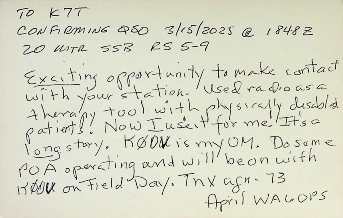 TO K7T
CONFIRMING QSO 3/15/2025 @ 1848Z
20 MTR SSB RS 5-9
Exciting opportunity to make contact
with your station. Used radio as a
therapy tool with physically disabled
patients. Now I use it for me. It's a
long story. KØØV is my OM. Do some
POA operating and will been with
KØØV on Field Day. Tnx agn. 73
April WA6OPS